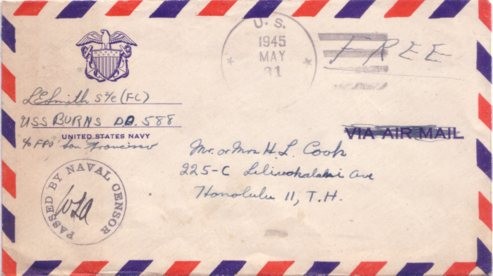 U. S.
1945
MAY
31
FREE
LESmith S1/c (FC)
USS BURNS DD. 588
UNITED STATES NAVY
c/o FPO San Francisco
VIA AIR MAIL
Mr. or Mrs H. L. Cook
225-C Liliuokalani Ave
Honolulu 11, T.H.
PASSED BY NAVAL CENSOR